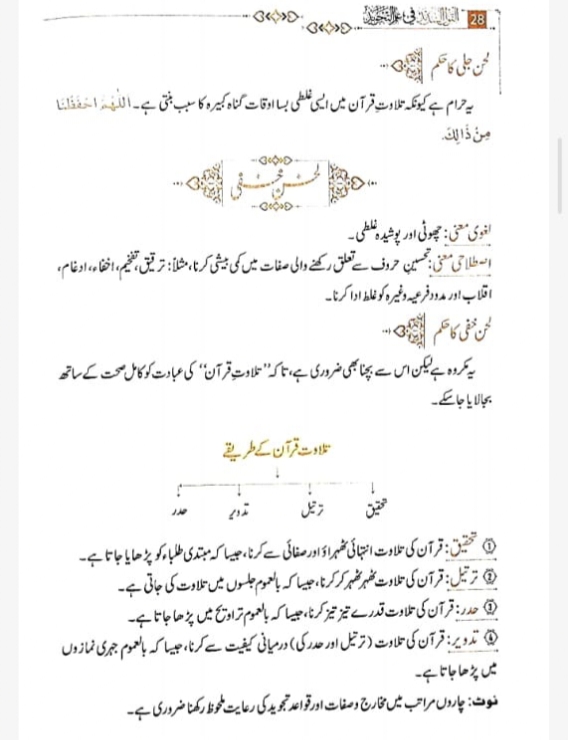 28
لحن جلی کا حکم
یہ حرام ہے کیونکہ تلاوتِ قرآن میں ایسی غلطی بسا اوقات گناہ کبیرہ کا سبب بنتی ہے۔ اَللّٰهُمَّ احْفَظْنَا
مِنْ ذَالِكَ۔
لحنِ خفی
لغوی معنی: چھوٹی اور پوشیدہ غلطی۔
اصطلاحی معنی: تحسینِ حروف سے تعلق رکھنے والی صفات میں کمی بیشی کرنا، مثلاً: ترقیق، تفخیم، اخفاء، ادغام،
اقلاب اور مدود فرعیہ وغیرہ کو غلط ادا کرنا۔
لحن خفی کا حکم
یہ مکروہ ہے لیکن اس سے بچنا بھی ضروری ہے، تاکہ ’’تلاوتِ قرآن‘‘ کی عبادت کو کامل صحت کے ساتھ
بجا لایا جا سکے۔
تلاوت قرآن کے طریقے
تحقیق ترتیل تدویر حدر
① تحقیق: قرآن کی تلاوت انتہائی ٹھہراؤ اور صفائی سے کرنا، جیسا کہ مبتدی طلباء کو پڑھایا جاتا ہے۔
② ترتیل: قرآن کی تلاوت ٹھہر ٹھہر کر کرنا، جیسا کہ بالعموم جلسوں میں تلاوت کی جاتی ہے۔
③ حدر: قرآن کی تلاوت قدرے تیز تیز کرنا، جیسا کہ بالعموم تراویح میں پڑھا جاتا ہے۔
④ تدویر: قرآن کی تلاوت (ترتیل اور حدر کی) درمیانی کیفیت سے کرنا، جیسا کہ بالعموم جہری نمازوں
میں پڑھا جاتا ہے۔
نوٹ: چاروں مراتب میں مخارج وصفات اور قواعد تجوید کی رعایت ملحوظ رکھنا ضروری ہے۔